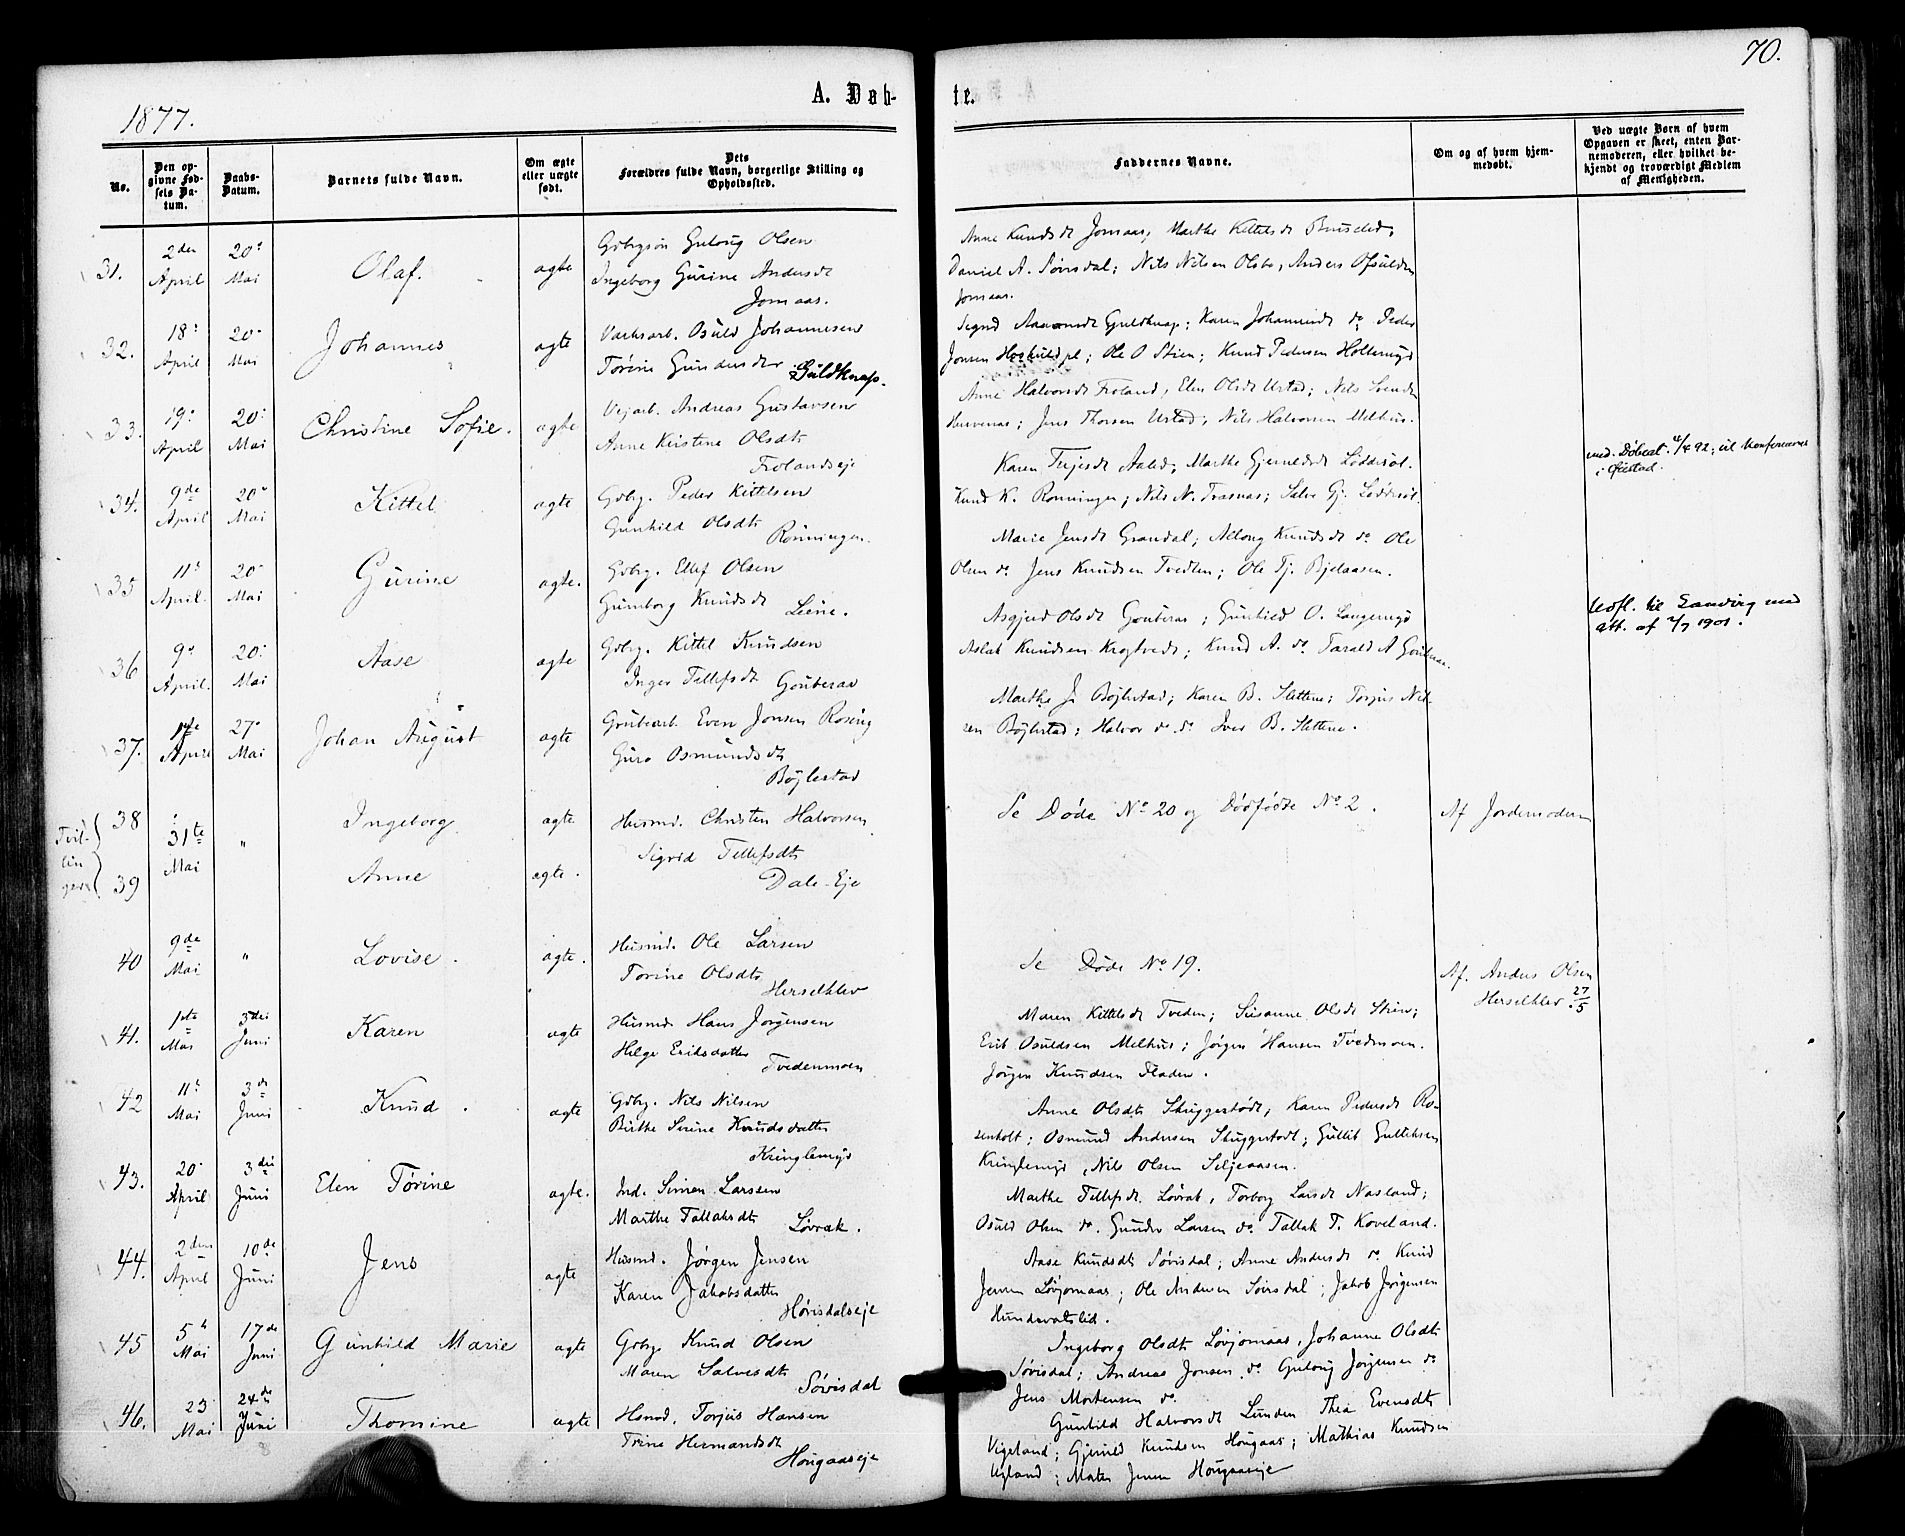 70.
1877.
A. Døb-
te.
No.
Den op-
givne Fød-
sels Da-
tum.
Daabs-
Datum.
Barnets fulde Navn.
Om ægte
eller uægte
født.
Dets
Forældres fulde Navn, borgerlige Stilling og
Opholdssted.
Faddernes Navne.
Om og af hvem hjem-
medøbt.
Ved uægte Børn af hvem
Opgaven er skeet, enten Bar-
nemoderen, eller hvilket be-
kjendt og troværdigt Medlem
af Menigheden.
31.
2den
April
20
Mai
Olaf.
ægte
Gbrgsøn Gulovg Olsen
Ingeborg Gurine Andersdt
Jomaas.
Anne Knudsdt Jomaas, Marthe Kittilsdt
Daniel A. Søvisdal; Nils Nilsen Olsbo, Anders Osuldsen
Jomaas.
32.
18
April
20
Mai
Johannes
ægte
Værksarb. Osuld Johannesen
Tørine Gundersdtr Guldknap.
Sigrid Aanondsdt Guldknap; Karen Johannesdt do Peder
Jonsen; Ole O Stien; Knud Pedersen Holtemyr
33.
19
April
20
Mai
Christine Sofie.
ægte
Vejarb. Andreas Gustavsen
Anne Kirstine Olsdtr
Frolandseje
Anne Halvorsdt Froland, Elen Olsdt Ustad; Nils Svends
Jens Thorsen Ustad, Nils Halvorsen Melhus.
med. Døbeat. 4/4 92, til Konfirmeres
i Øiestad.
34.
9de
April
20
Mai
Kittel
ægte
Gbrg. Peder Kittelsen
Gunhild Olsdtr
Rønningen.
Karen Terjesdt; Marthe Gjeruldsdt Løddesøl.
Knud K. Rønningen; Nils N. Trasnas; Salve Gj. Løddesøl.
35
11
April.
20
Mai
Gurine
ægte.
Gbrg. Ellef Olsen
Gunborg Knudsdt Leine.
Marie Jensdt Grandal; Allong Knudsdt do Ole
Olsen do Jens Knudsen Tvedten; Ole Tj. Bjelaasen.
36
9
April.
20
Mai
Aase
ægte
Gbrg. Kittel Knudsen
Inger Tellefsdt Gouberas
Asgjerd Olsdt Gouberas; Gunhild O. Langemyr
Aslak Knudsen Krogtvedt; Knud A. do Tarald A Gouberas.
Udfl. til Sandvig med
att. af 2/7 1901.
37.
April
27
Mai
Johan August
ægte
Grubearb. Even Jonsen Rosing
Guro Osmundsdt
Bøylestad
Marthe J. Bøylestad; Karen B. Slettene; Torjus Nil-
sen Bøylestad; Halvor do do Iver B. Slettene.
Tvil-
lin
ger
38
39
31te
Mai
"
Ingeborg
Anne
ægte
ægte.
Husmd. Christen Halvorsen
Sigrid Tellefsdt
Dale-Eje
Se Døde No 20 og Dødfødte No 2.
Af Jordemoderen
40
9de
Mai
"
Lovise.
ægte.
Husmd. Ole Larsen
Torine Olsdtr
Herselklev
Se Døde No 19.
Af. Anders Olsen
Herselklev. 27/5
41.
1ste
Mai
3die
Juni
Karen
ægte
Husmd. Hans Jørgensen
Helge Eriksdatter
Tvedenmoen
Maren Kittelsdt Tveden; Susanne Olsdt Stien;
Erik Osuldsen Melhus; Jørgen Hansen Tvedmoen.
Jørgen Knudsen Fladen.
42
11
Mai
3
Juni
Knud.
ægte
Gbrg. Nils Nilsen
Birthe Serine Knudsdatter
Kringlemyr
Anne Olsdtr Skuggestødt; Karen Pedersdt Ro-
senholt; Osmund Andersen Skuggestødt; Gullik Gulliksen
Kringlemyr, Nils Olsen Seljeaasen.
43.
20
April
3die
Juni
Elen Tørine
ægte.
Ind. Simen Larssen
Marthe Tallaksdtr Løvrak.
Marthe Tellefsdt. Løvrak, Torborg Larsdt Nasland;
Osuld Olsen do. Gunder Larsen do. Tallak T. Koveland.
44.
2den
April
10de
Juni
Jens
ægte
Husmd. Jørgen Jensen
Karen Jakobsdatter
Høvisdalseje
Aase Knudsdtr Søvisdal; Anne Andersdt do Knud
Jensen Løvjomaas; Ole Andersen Søvisdal; Jakob Jørgensen
Hundevatslid.
45
5
Mai
17de
Juni
Gunhild Marie
ægte
Gbrg. Knud Olsen
Maren Salvesdtr
Søvisdal
Ingeborg Olsdtr Løvjomaas, Johanne Olsdtr
Søvisdal; Andreas Jonsen do Gulovg Jørgensen do
Jens Mortensen do
46.
23
Mai
24de
Juni
Thomine
ægte
Hsmd. Torjus Hansen
Trine Hermandsdt
Hougaaseje
Gunhild Halvorsdt Lunden Thea Evensdtr
Vigeland; Gjeruld Knudsen Hougaas; Mathias Knudsen
Ugland; Mates Jensen Hougaaseje